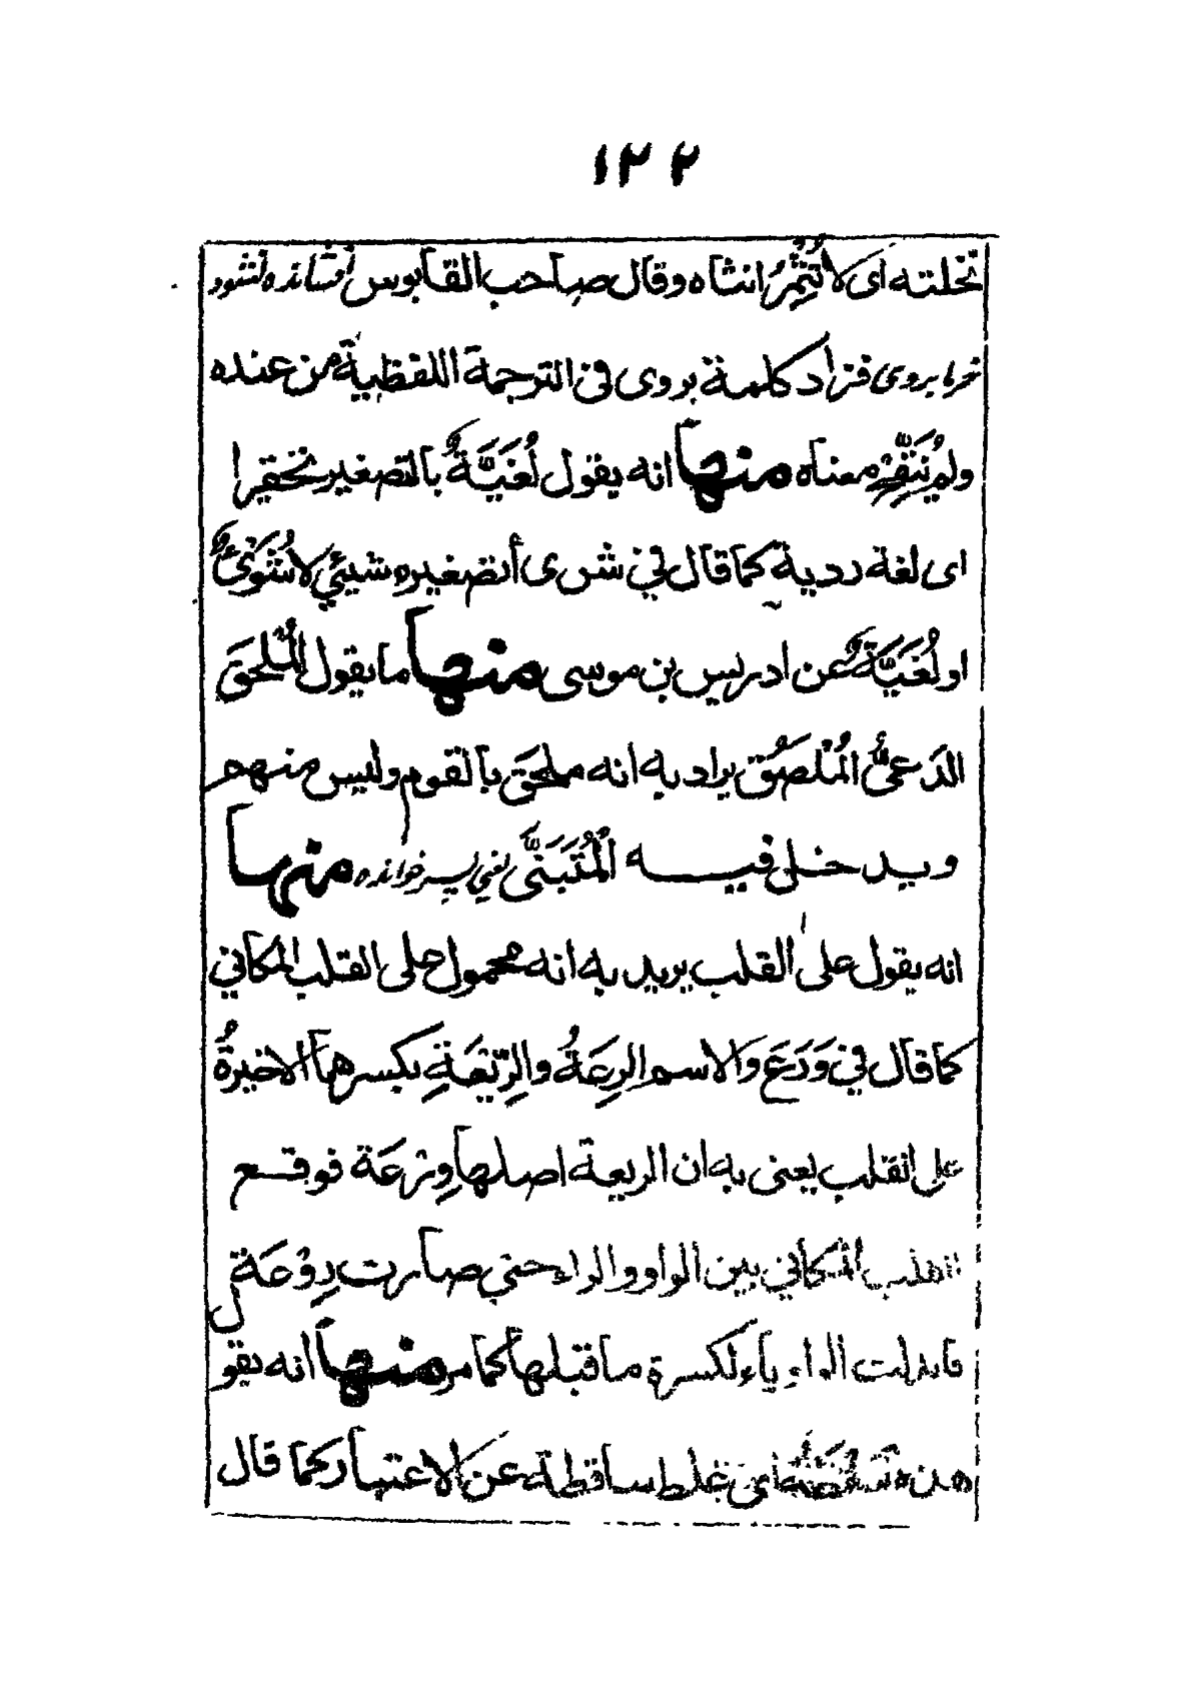 ١٢٢
نخلته اى لا تُثْمِرُ انثاه وقال صاحب القابوس افشانده نشود
خرما بروى فزاد كلمة بروى فى الترجمة اللفظية من عنده
ولم معناه منها انه يقول لُغَيَّةٌ بالتصغير تحقيرا
اى لغة ردية كما قال في شىء أن تصغيره شييئ لا شُوَىْءٌ
او لُغَيَّةٌ عن ادريس بن موسى منها ما يقول المُلحَق
الدَعىُّ المُلْصَق يراد به انه ملحق بالقوم وليس منهم
ويدخل فيه المُتَبَنَّى يعني پسر خوانده منها
انه يقول على القلب يريد به انه محمول على القلب المكاني
كما قال في وَرَعَ والاسم الرِعَةُ والرِّيْعَةِ بكسرهما الاخيرةُ
على القلب يعنى به ان الريعة اصلها وِرْعَة فوقع
القلب المكاني بين الواو والراء حتي صارت رِوْعَة
فابدلت الواو ياء لكسرة ما قبلها كما مر منها انه يقول
هذه اى غلط ساقطة عن الاعتبار كما قال